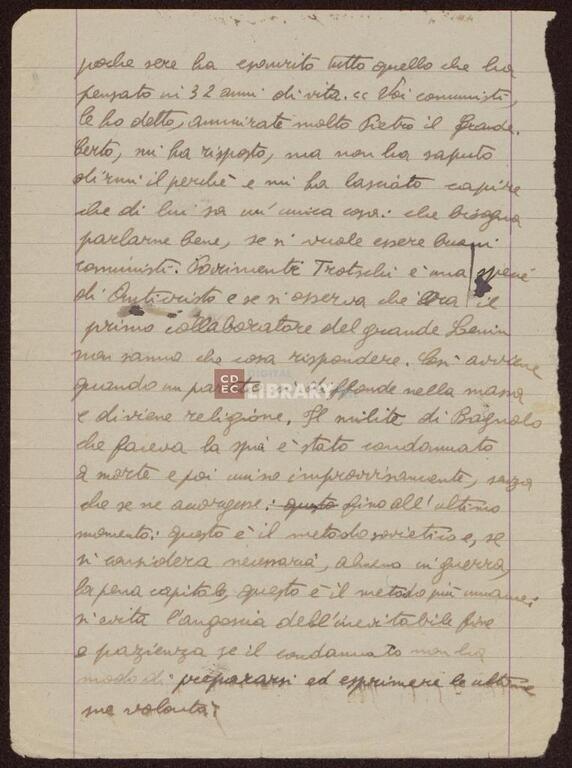 poche sere ha esaurito tutto quello che ha
pensato in 32 anni di vita. << Voi comunisti,
le ho detto, ammirate molto Pietro il Grande.
Certo, mi ha risposto, ma non ha saputo
dirmi il perchè e mi ha lasciato capire
che di lui sa un'unica cosa: che bisogna
parlarne bene, se si vuole essere buoni
comunisti. Parimenti Trotschi è una specie
di Anticristo e se si osserva che era il
primo collaboratore del grande Lenin
non sanno che cosa rispondere. Così avviene
quando un partito si diffonde nella massa
e diviene religione. Il milite di Bagnolo
che faceva la spia è stato condannato
a morte e poi ucciso improvvisamente, senza
che se ne accorgesse: questo fino all'ultimo
momento: questo è il metodo sovietico e, se
si considera necessaria, almeno in guerra,
la pena capitale, questo è il metodo più umano:
si evita l'angoscia dell'inevitabile fine
e pazienza se il condannato non ha
modo di prepararsi ed esprimere le ultime
sue volontà.
CDEC
DIGITAL
LIBRARY